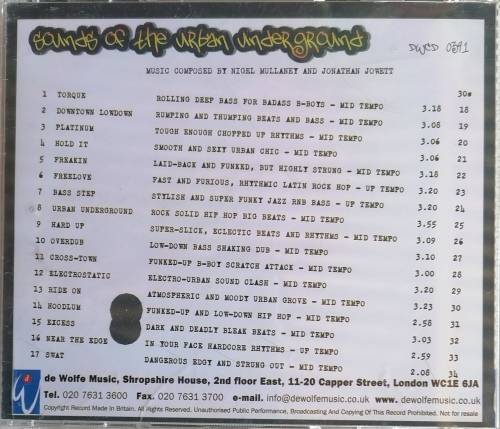 Sounds of the Urban Underground
DWCD 0391
MUSIC COMPOSED BY NIGEL MULLANEY AND JONATHAN JOWETT
30"
1 TORQUE ROLLING DEEP BASS FOR BADASS B-BOYS - MID TEMPO 3.18 18
2 DOWNTOWN LOWDOWN RUMPING AND THUMPING BEATS AND BASS - MID TEMPO 3.08 19
3 PLATINUM TOUGH ENOUGH CHOPPED UP RHYTHMS - MID TEMPO 3.06 20
4 HOLD IT SMOOTH AND SEXY URBAN CHIC - MID TEMPO 3.06 21
5 FREAKIN LAID-BACK AND FUNKED, BUT HIGHLY STRUNG - MID TEMPO 3.18 22
6 FREELOVE FAST AND FURIOUS, RHYTHMIC LATIN ROCK HOP - UP TEMPO 3.20 23
7 BASS STEP STYLISH AND SUPER FUNKY JAZZ RNB BASS - UP TEMPO 3.20 24
8 URBAN UNDERGROUND ROCK SOLID HIP HOP BIG BEATS - MID TEMPO 3.55 25
9 HARD UP SUPER-SLICK, ECLECTIC BEATS AND RHYTHMS - MID TEMPO 3.09 26
10 OVERDUB LOW-DOWN BASS SHAKING DUB - MID TEMPO 3.10 27
11 CROSS-TOWN FUNKED-UP B-BOY SCRATCH ATTACK - MID TEMPO 3.00 28
12 ELECTROSTATIC ELECTRO-URBAN SOUND CLASH - MID TEMPO 3.20 29
13 RIDE ON ATMOSPHERIC AND MOODY URBAN GROVE - MID TEMPO 3.23 30
14 HOODLUM FUNKED-UP AND LOW-DOWN HIP HOP - MID TEMPO 2.58 31
15 EXCESS DARK AND DEADLY BLEAK BEATS - MID TEMPO 3.03 32
16 NEAR THE EDGE IN YOUR FACE HARDCORE RHYTHMS - UP TEMPO 2.59 33
17 SWAT DANGEROUS EDGY AND STRUNG OUT - MID TEMPO 2.08 34
de Wolfe Music, Shropshire House, 2nd floor East, 11-20 Capper Street, London WC1E 6JA
Tel. 020 7631 3600 Fax. 020 7631 3700 e-mail. info@dewolfemusic.co.uk www.dewolfemusic.co.uk
Copyright Record Made In Britain. All Rights Reserved. Unauthorised Public Performance, Broadcasting And Copying Of This Record Prohibited. Not for resale